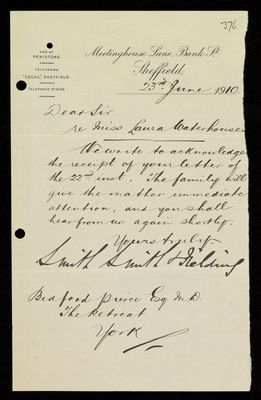 376
AND AT
PENISTONE.
TELEGRAMS,
"LEGAL" SHEFFIELD.
Meetinghouse Lane, Bank St
Sheffield,
23rd June 1910
Dear Sir.
re Miss Laura Waterhouse
We write to acknowledge
the receipt of your letter of
the 22nd inst. The family will
give the matter immediate
attention, and you shall
hear from us again shortly.
Yours truly.
Smith Smith & Fielding
Bedford Pierce Esq M.D.
The Retreat
York